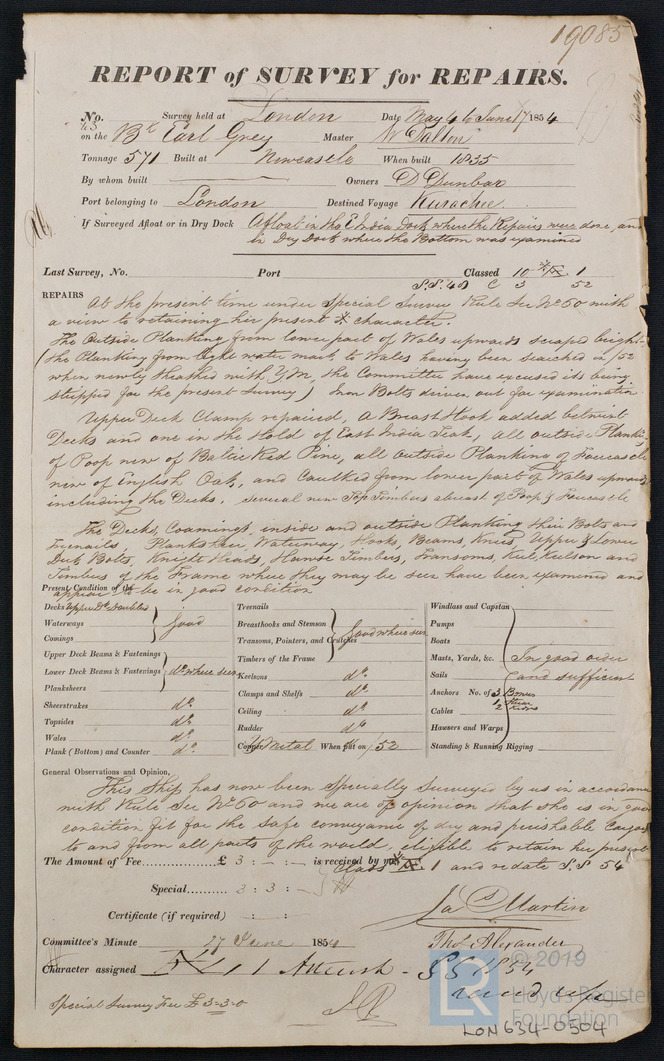 19085
REPORT of SURVEY for REPAIRS.
No. Survey held at London Date May 4 to June 17 1854
on the Bk Earl Grey Master W Dalton
Tonnage 571 Built at Newcastle When built 1835
By whom built Owners D Dunbar
Port belonging to London Destined Voyage Kurachee
If Surveyed Afloat or in Dry Dock Afloat in the E India Dock where the Repairs were done, and
in Dry Dock where the Bottom was examined
Last Survey, No. Port Classed 10 1
52
REPAIRS At the present time under Special Survey Rule Sec No 60 with
a view to retaining her present * character.
The Outside Planking from lower part of Wales upwards scraped bright
(the Planking from light water mark to Wales having been searched in /52
when newly sheathed with Y.M, the Committee have excused its being
stripped for the present Survey) Iron Bolts driven out for examination
Upper Deck Clamp repaired, a Breast Hook added betwixt
Decks and one in the Hold of East India Teak, all outside Planking
of Poop new of Baltic Red Pine, all outside Planking of Forecastle
new of English Oak, and Caulked from lower part of Wales upwards
including the Decks. several new Top Timbers abreast of Poop & Forecastle
The Decks, Coamings, inside and outside Planking their Bolts and
Treenails, Planksheer, Waterway, Hooks, Beams, Knees, Upper & Lower
Deck Bolts, Knight Heads, Hawse Timbers, Transoms, Keel, Keelson and
Timbers of the Frame where they may be seen have been examined and
Present Condition of the appear to be in good condition
Decks Upper Dk Doubled
Waterways good
Comings
Upper Deck Beams & Fastenings
Lower Deck Beams & Fastenings do where seen
Planksheers
Sheerstrakes do
Topsides do
Wales do
Plank (Bottom) and Counter do
Treenails
Breasthooks and Stemson good where seen
Transoms, Pointers, and Crutches
Timbers of the Frame
Keelsons do
Clamps and Shelfs do
Ceiling do
Rudder do
Copper Y Metal When put on /52
Windlass and Capstan
Pumps
Boats
Masts, Yards, &c. In good order
Sails and sufficient
Anchors No. of 3 Bowers
Cables
Hawsers and Warps
Standing & Running Rigging
General Observations and Opinion,
This Ship has now been Specially Surveyed by us in accordance
with Rule Sec No 60 and we are of opinion that she is in good
condition fit for the safe conveyance of dry and perishable Cargoes
to and from all parts of the world, eligible to retain her present
The Amount of Fee £ 3 : - : - is received by me, Class 1 and redate S.S 54
Special 3 : 3 : -
Certificate (if required) : :
Jas Martin
Thos Alexander
Committee's Minute 27 June 1854
Character assigned 1
Special Survey Fee £3-3-0
© 2019
LR
Lloyd's Register
Foundation
LON634-0504